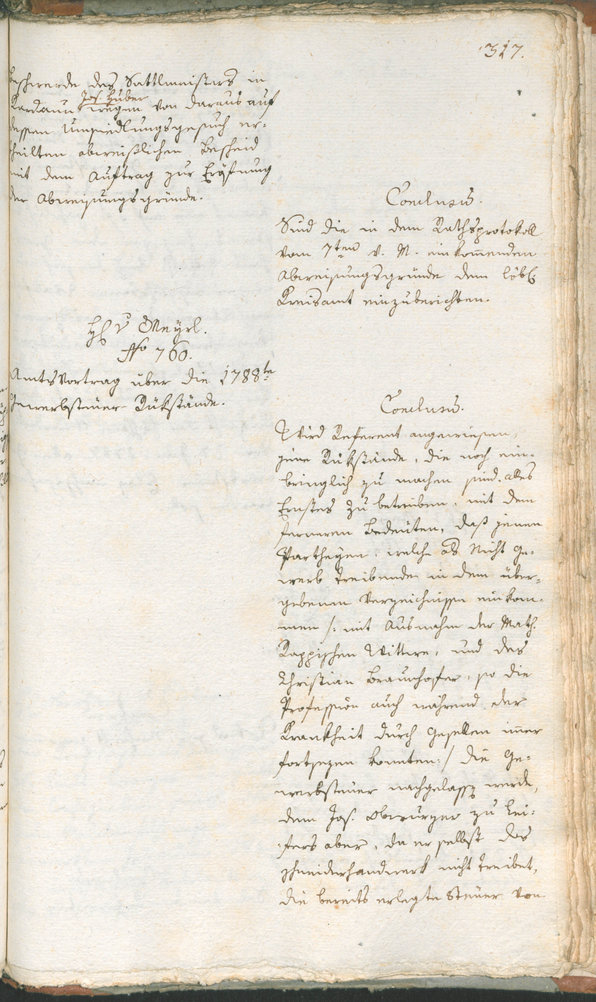 317.
beschwerde des Sattlmeisters in
Kardaun Jos. Huber wegen von daraus auf
dessen Umsiedlungsgesuch er-
theilten abweißlichen Bescheid
mit dem Auftrag zur Eröfnung
der Abweisungsgründe.
Conclusum.
Sind die in dem Rathsprotokoll
vom 7ten d. M. einkom̅enden
Abweisungsgründe dem löbl
Kreisamt einzuberichten.
H v Meyrl.
No 760.
Amtsvortrag über die 1788te
Gewerbsteuer Rükstände.
Conclusum.
Wird Referent angewiesen,
jene Rükstände, die noch ein-
bringlich zu machen sind, alles
Ernstes zu betreiben, mit dem
ferneren Bedeuten, daß jenen
Partheyen, welche als Nicht Ge-
werb treibende in dem über-
gebenen Verzeichnisse einkom-
men /: mit Ausnahm der Math.
Rappischen Wittwe, und des
Christian Braunhofer, so die
Profession auch während der
Krankheit durch Gesellen im̅er
fortsezen konnten :/ die Ge-
werbsteuer nachgelassen werde,
dem Jos. Obwurzer zu Lei-
fers aber, da er selbst das
Schneiderhandwerk nicht treibet,
die bereits erlegte Steuer von